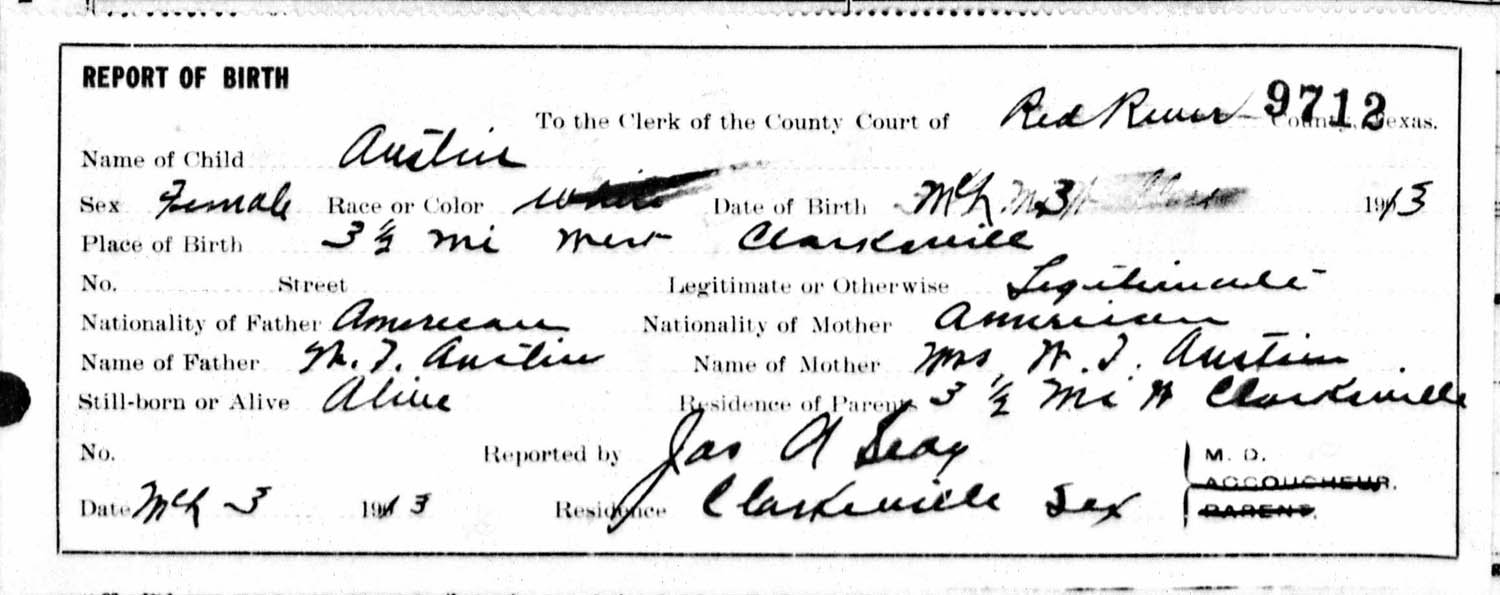 REPORT OF BIRTH
9712
To the Clerk of the County Court of Red River County, Texas.
Name of Child Austin
Sex Female Race or Color White Date of Birth Mch 3 1913
Place of Birth 3 ½ mi West Clarksville
No. Street Legitimate or Otherwise Legitimate
Nationality of Father American Nationality of Mother American
Name of Father W. T. Austin Name of Mother Mrs, W. T. Austin
Still-born or Alive Alive Residence of Parents 3 ½ Mi W Clarksville
No. Reported by Jas A Seay M. D.
ACCOUCHEUR.
Date Mch 3 1913 Residence Clarksville Tex PARENT.